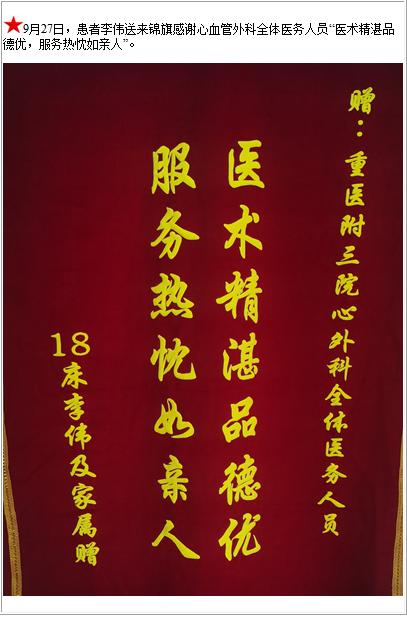 ★9月27日，患者李伟送来锦旗感谢心血管外科全体医务人员“医术精湛品
德优，服务热忱如亲人”。
赠：重医附三院心外科全体医务人员
医术精湛品德优
服务热忱如亲人
18床李伟及家属赠